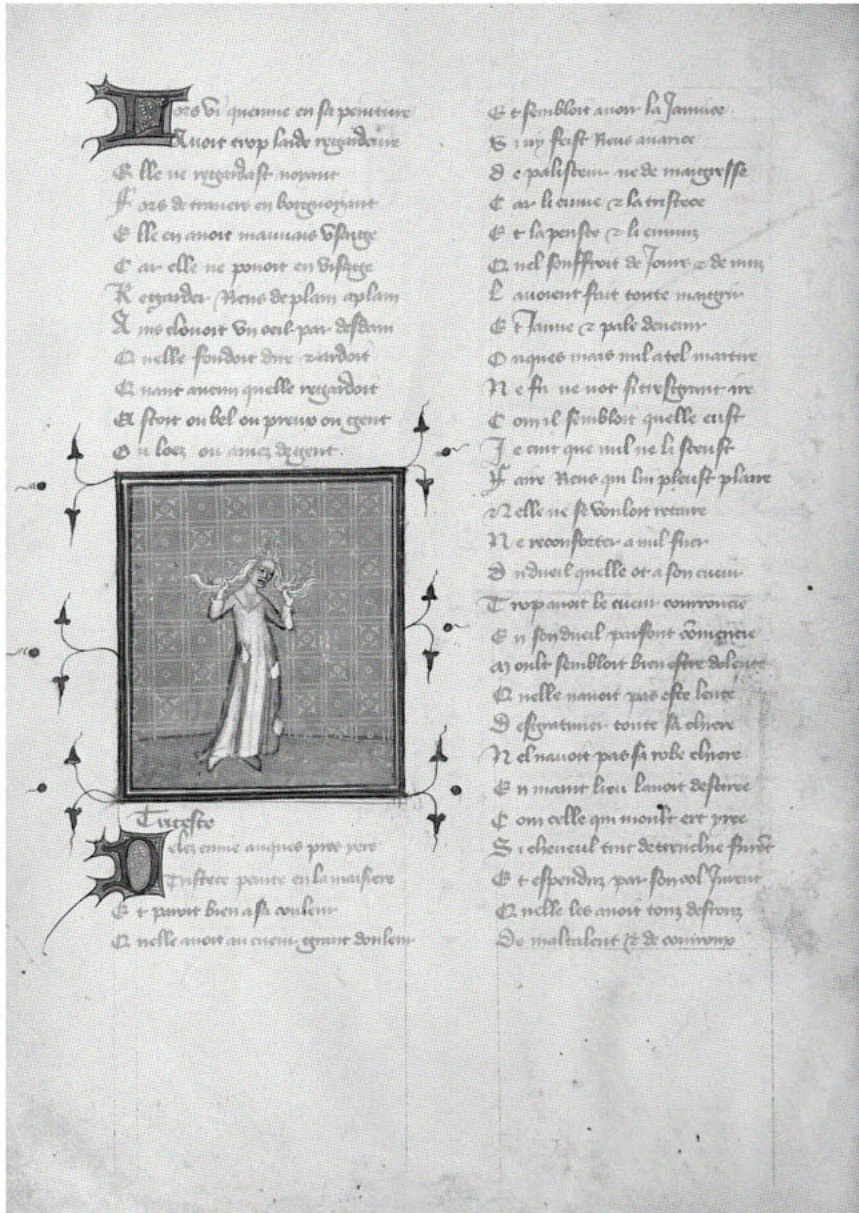 Lors vi quenuie en sa peinture
Auoit trop laide regardeure
Elle ne regardast noyant
Fors de trauers en borgnoyant
Elle en auoit mauuais vsaige
Car elle ne pouoit en visaige
Regarder Riens de plain aplain
Ains clouoit vn oeil par desdain
Quelle fondoit dire et ardoit
Quant aucun quelle regardoit
Estoit ou bel ou preux ou gent
Ou loez ou amez de gent.
Tristesce
Delez enuie auques pres yere
Tristece peinte en la maisiere
Et paroit bien a sa couleur
Quelle auoit au cueur grant douleur
Et sembloit auoir la Jaunice
Si ny feist Riens auarice
de palisseur ne de maigresse
Car li enuie et la tristece
Et la pensee et li ennuiz
Quel souffroit de Jours et de nuiz
Lauoient fait toute maigrir
Et Jaune et pale deuenir
Onques mais nul a tel martire
Ne fu ne not si tresgrant ire
Com il sembloit quelle eust
Je cuit que nul ne li sceust
Faire Riens qui lui pleust plaire
Nelle ne se vouloit retraire
Ne reconforter a nul fuer
Du dueil quelle ot a son cueur
Trop auoit le cueur courroucie
En son dueil parfont comencie
Moult sembloit bien estre dolente
Quelle nauoit pas este lente
Desgratiner toute sa chiere
Nel nauoit pas sa robe chiere
En maint lieu lauoit desciree
Com celle qui moult ert yree
Si cheueul tuit destrechie furent
Et espenduz par son col Jurent
Quelle les auoit touz desrouz
De maltalent et de courroux